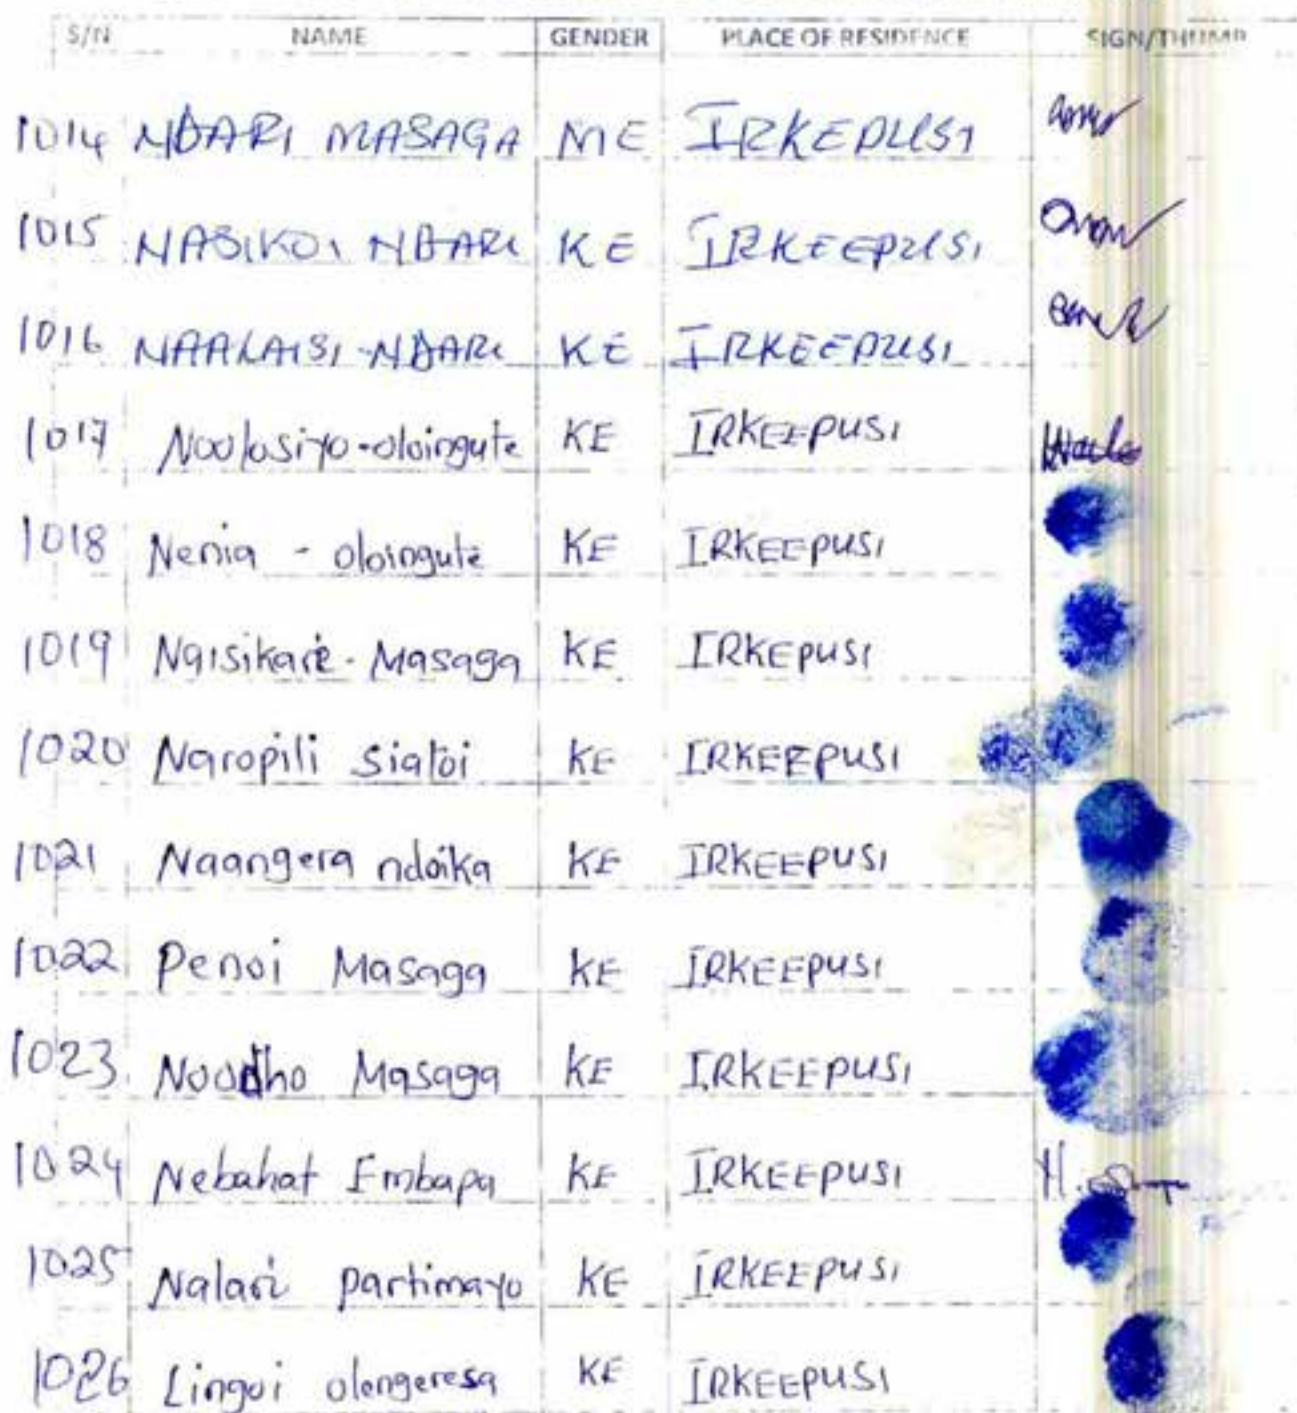 S/N NAME GENDER PLACE OF RESIDENCE SIGN/THUMP
1014 NDARI MASAGA ME IRKEPUSI
1015 NASIKOI NDARI KE IRKEEPUSI
1016 NAALAISI-NDARI KE IRKEEPUSI
1017 Noolosiyo-oloingute KE IRKEEPUSI
1018 Nenia - oloingute KE IRKEEPUSI
1019 Ngisikare - Masaga KE IRKEPUSI
1020 Naropili Siatoi KE IRKEEPUSI
1021 Naangera ndoika KE IRKEEPUSI
1022 Penoi Masaga KE IRKEEPUSI
1023 Masaga KE IRKEEPUSI
1024 Nebahat Embapa KE IRKEEPUSI
1025 Nalari partimayo KE IRKEEPUSI
1026 Lingoi olengeresa KE IRKEEPUSI